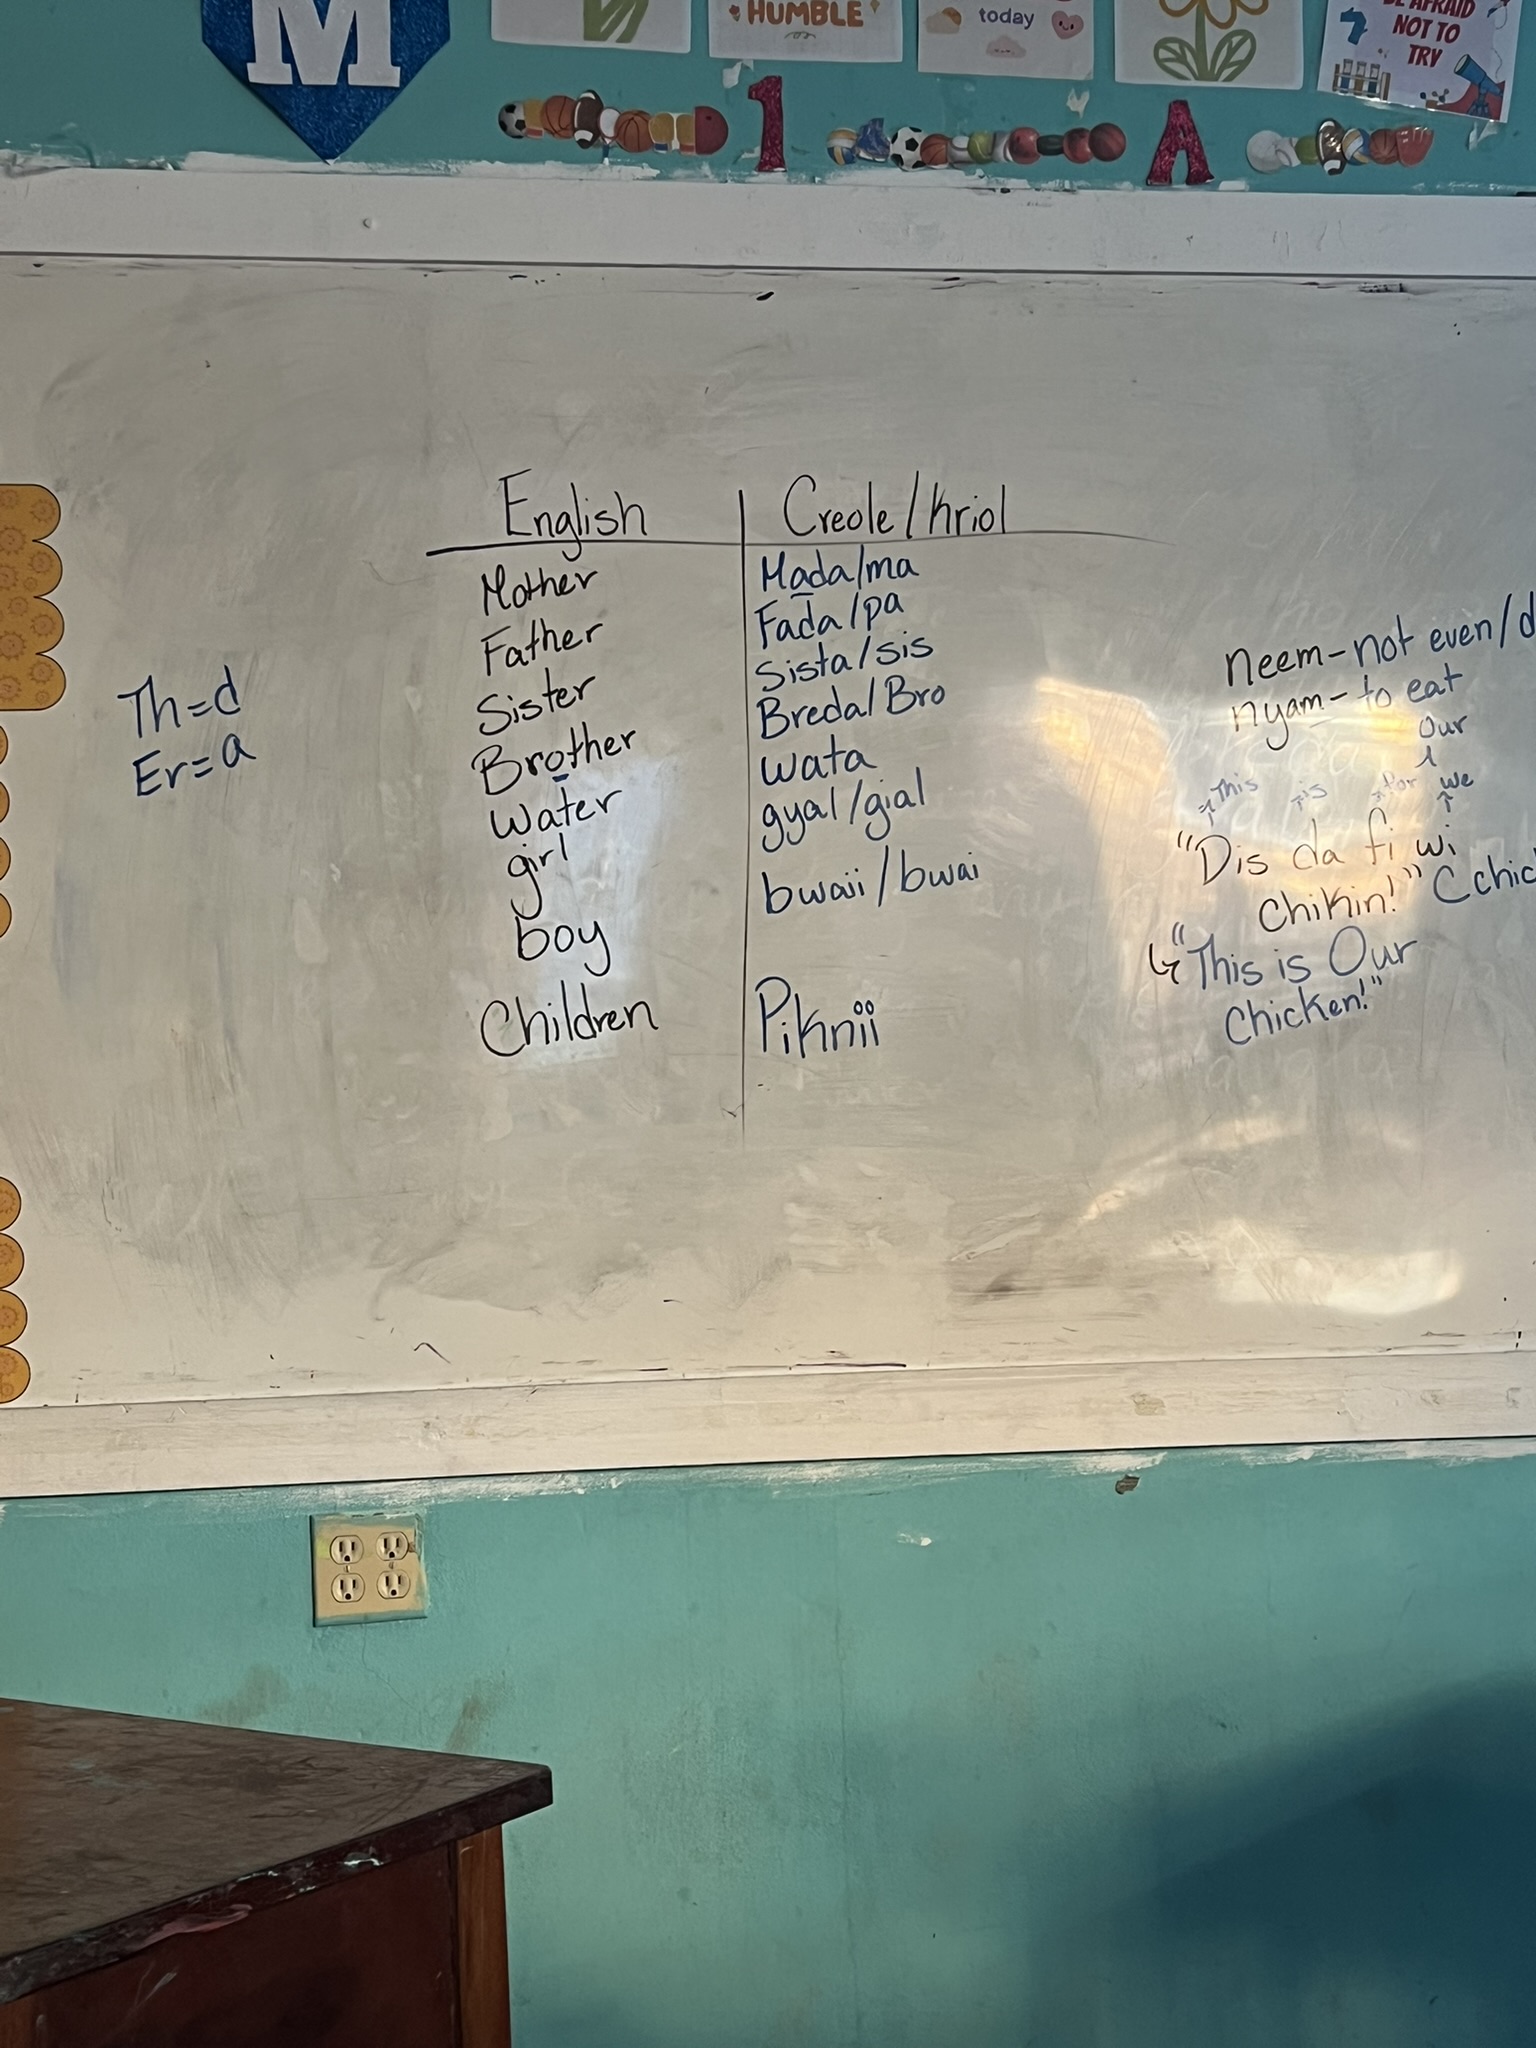 M
HUMBLE
today
BE AFRAID
NOT TO
TRY
1 A
English Creole/Kriol
Mother Mada/ma
Father Fada/pa
Sister Sista/sis
Brother Breda/Bro
Water wata
girl gyal/gial
boy bwaii/bwai
Children Piknii
Th=d
Er=a
neem-not even/d
nyam-to eat
our
This is for we
"Dis da fi wi
chikin!" Cchic
"This is Our
Chicken!"